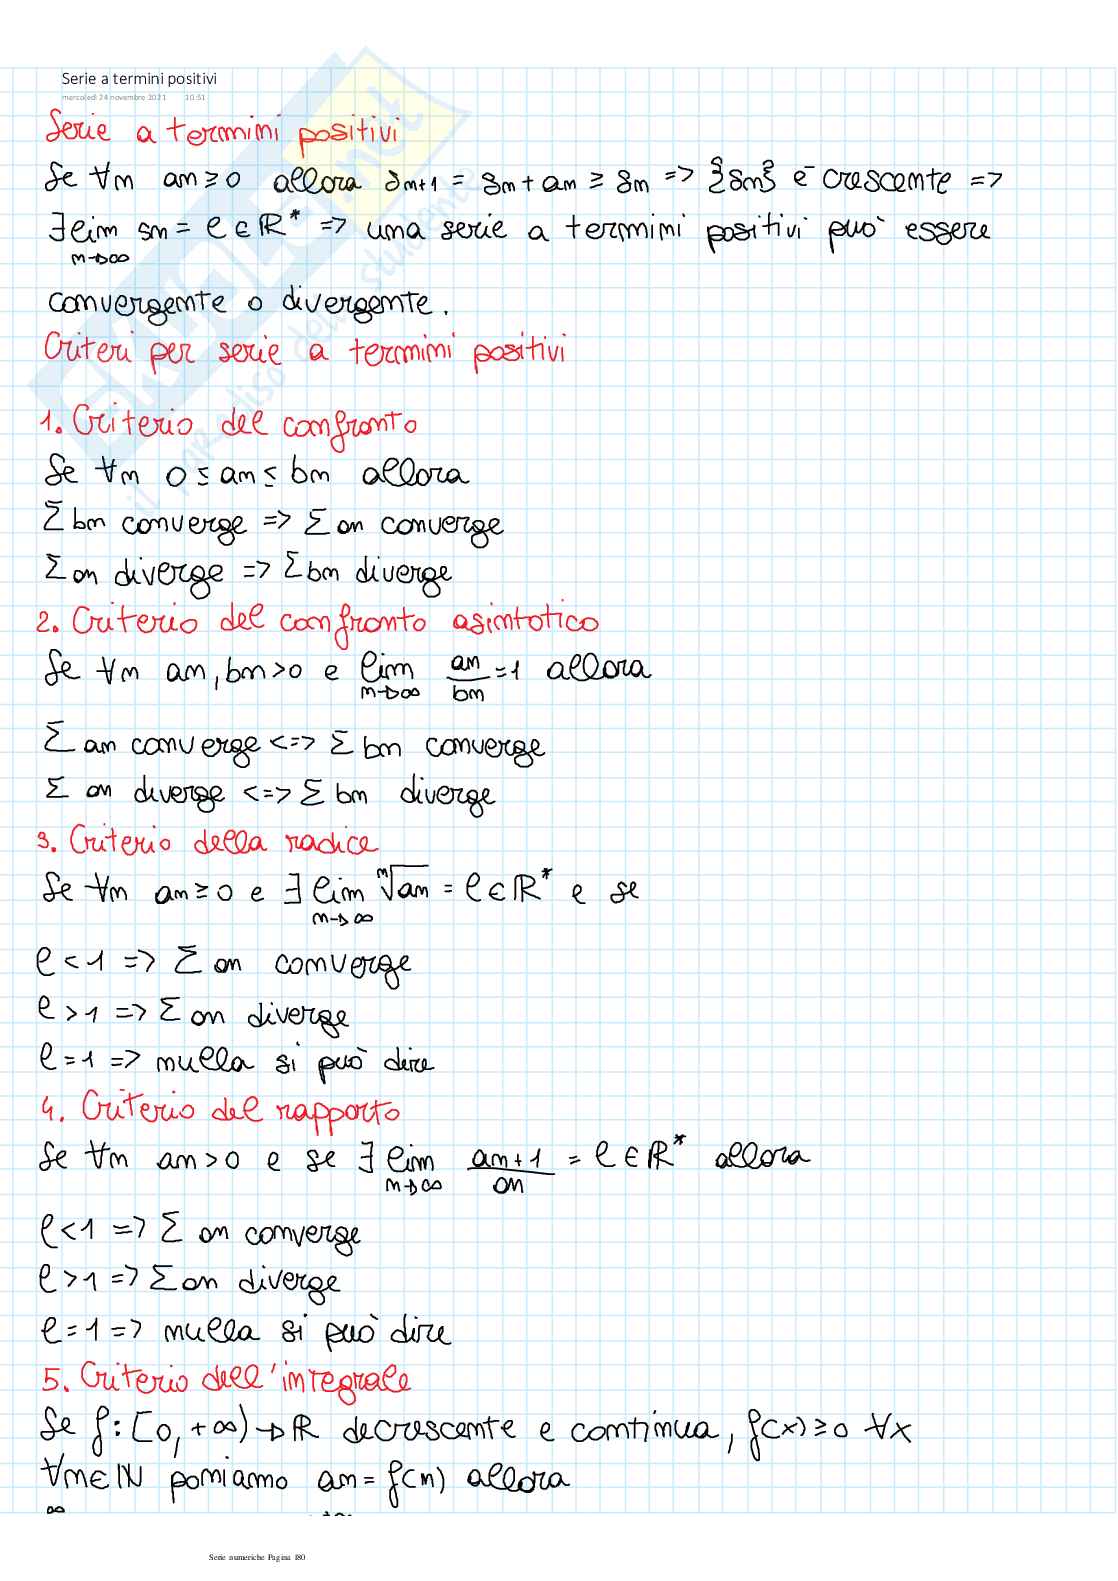 Serie a termini positivi
mercoledì 24 novembre 2021 10:51
Serie a termini positivi
Se ∀n an ≥ 0 allora sn+1 = sn + an ≥ sn => {sn} è crescente =>
∃ lim sn = l ∈ ℝ* => una serie a termini positivi può essere
n→∞
convergente o divergente.
Criteri per serie a termini positivi
1. Criterio del confronto
Se ∀n 0 ≤ an ≤ bn allora
Σ bn converge => Σ an converge
Σ an diverge => Σ bn diverge
2. Criterio del confronto asintotico
Se ∀n an, bn > 0 e lim an/bn = 1 allora
n→∞
Σ an converge <=> Σ bn converge
Σ an diverge <=> Σ bn diverge
3. Criterio della radice
Se ∀n an ≥ 0 e ∃ lim ⁿ√an = l ∈ ℝ* e se
n→∞
l < 1 => Σ an converge
l > 1 => Σ an diverge
l = 1 => nulla si può dire
4. Criterio del rapporto
Se ∀n an > 0 e se ∃ lim an+1/an = l ∈ ℝ* allora
n→∞
l < 1 => Σ an converge
l > 1 => Σ an diverge
l = 1 => nulla si può dire
5. Criterio dell'integrale
Se f: [0, +∞) → ℝ decrescente e continua, f(x) ≥ 0 ∀x
∀n ∈ ℕ poniamo an = f(n) allora
∞ +∞
Serie numeriche Pagina 180